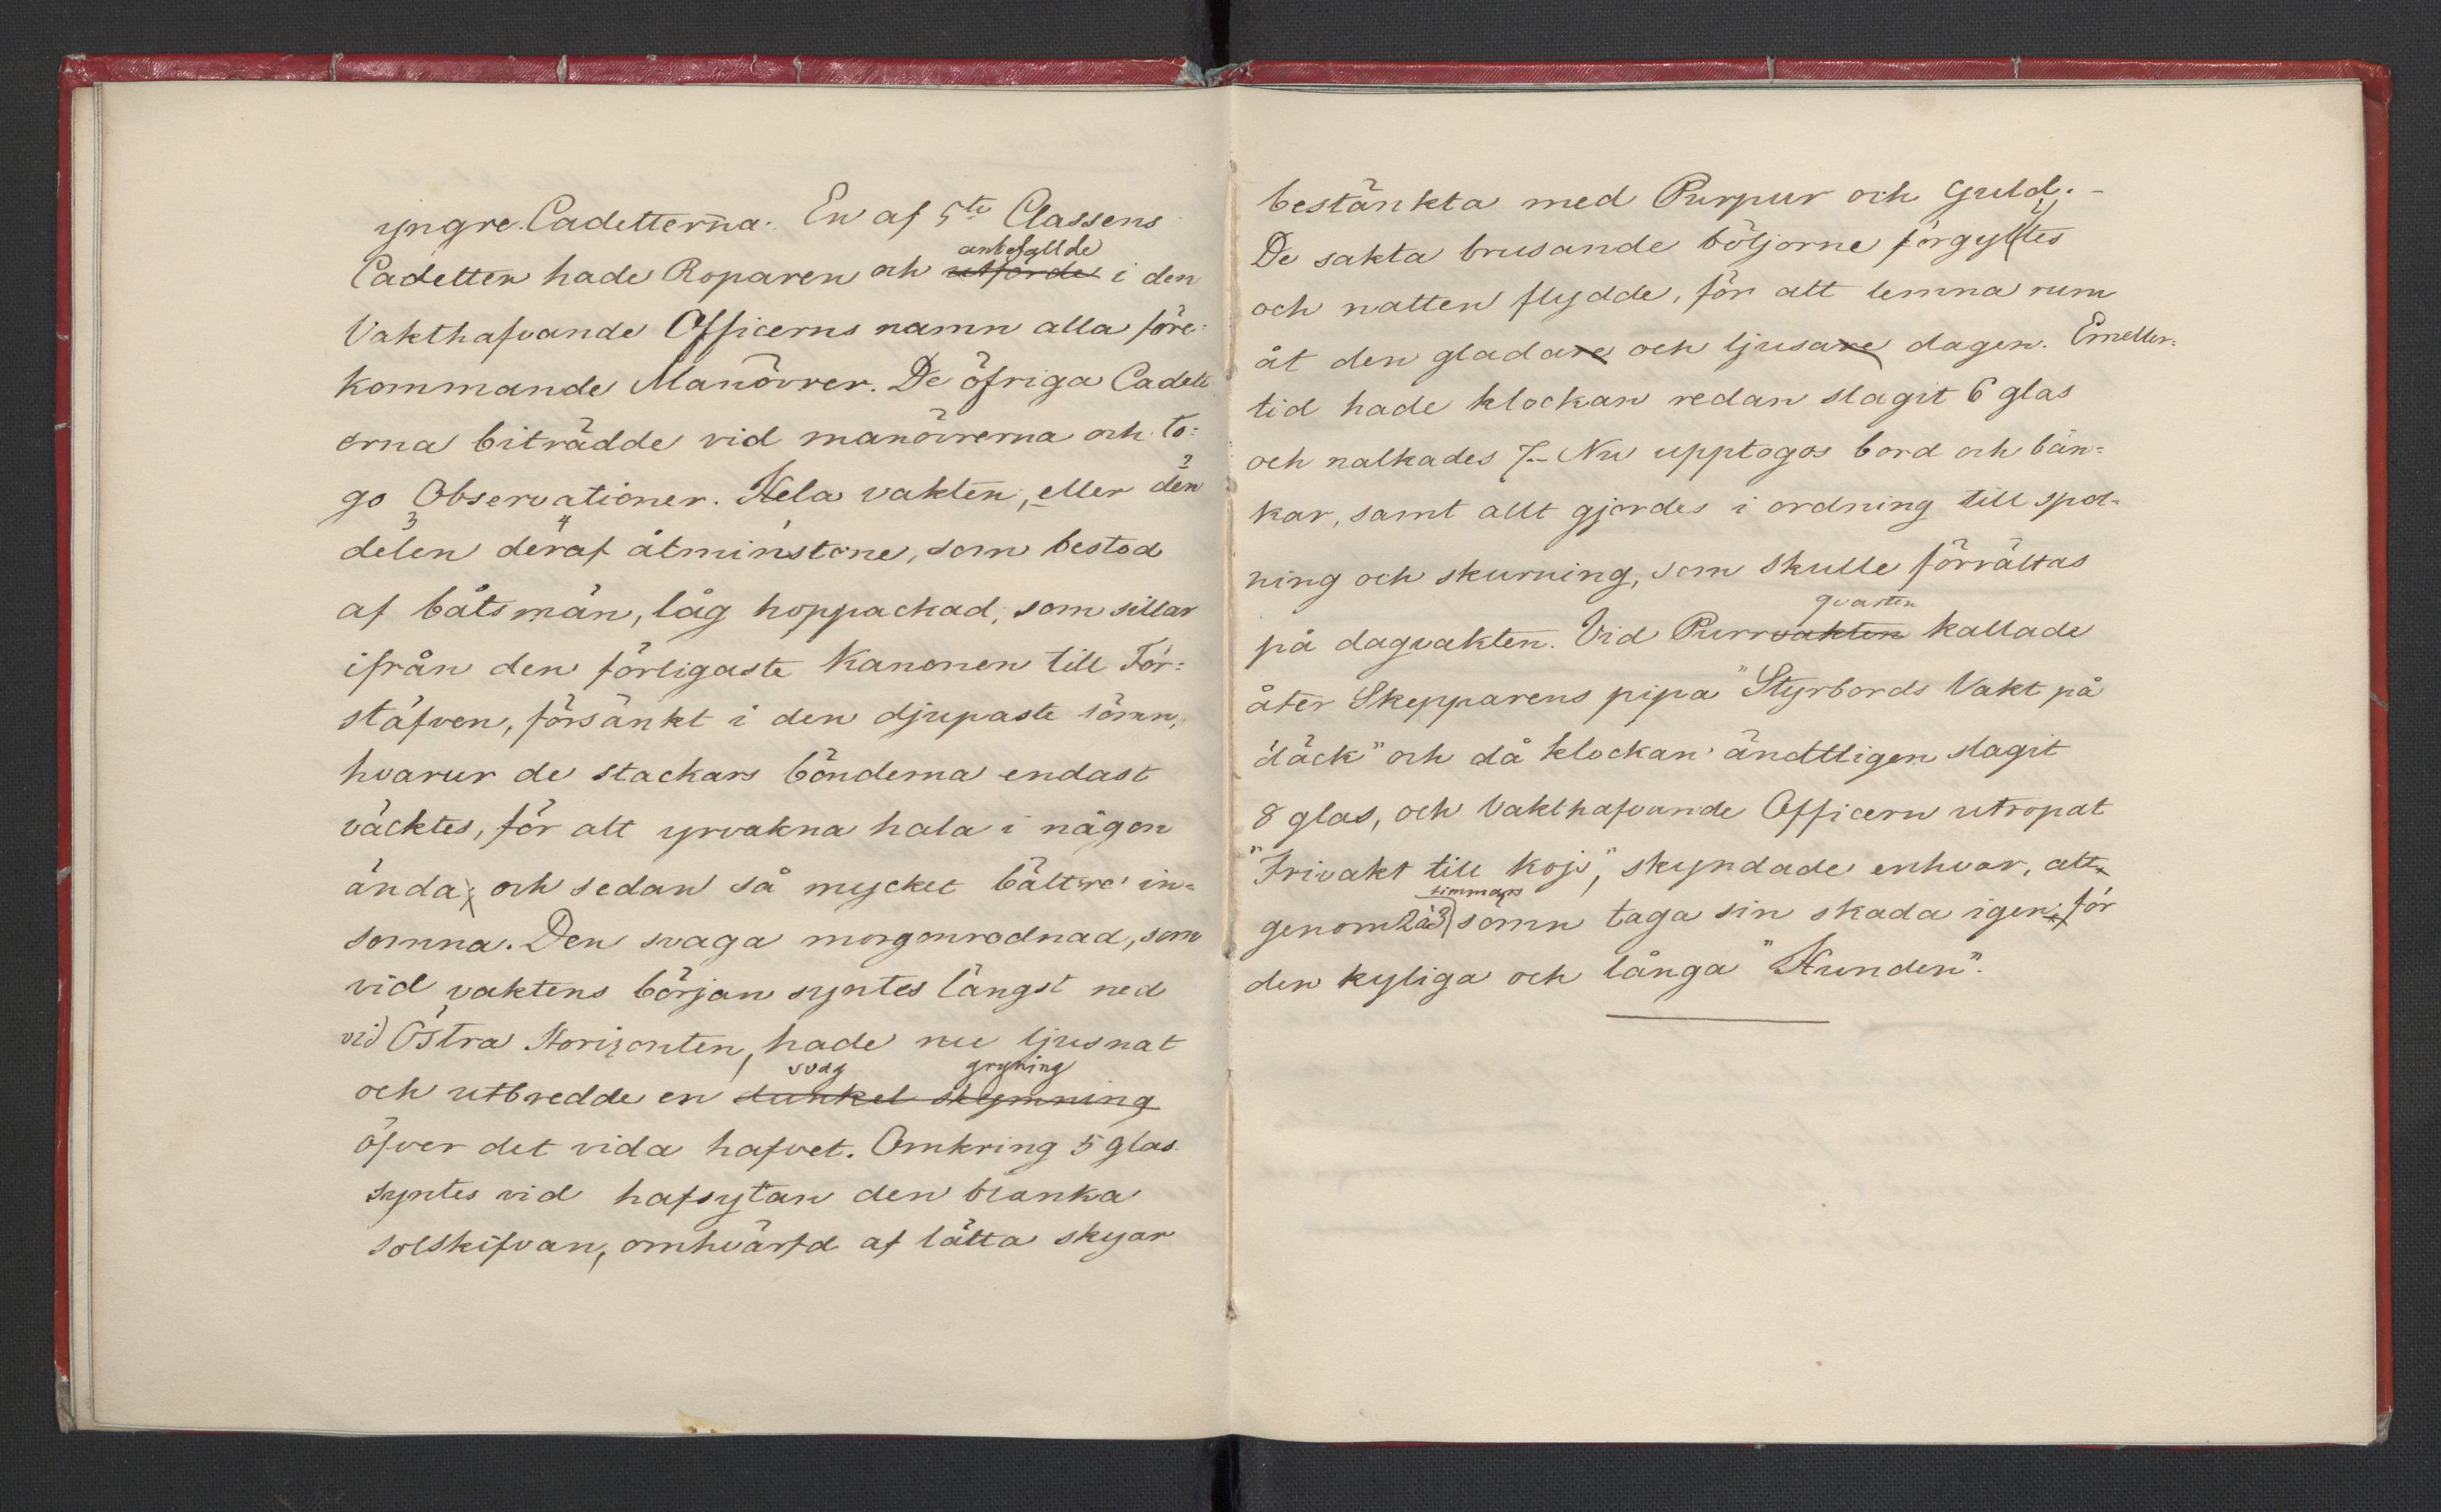 yngre Cadetterna. En af 5te Classens
anbefallde
Cadetter hade Roparen och utförde i den
Vakthafvande Officerns namn alla före-
kommande Manövrer. De öfriga Cadett
erna biträdde vid manövrerna och to-
go Observationer. Hela vakten, eller den
delen deraf åtminstone, som bestod
af båtsmän, låg hoppackad, som sillar
ifrån den förligaste Kanonen till För-
stäfven, försänkt i den djupaste sömn,
hvarur de stackars bönderna endast
väcktes, för att yrvakna hala i någon
ända, och sedan så mycket bättre in-
somna. Den svaga morgonrodnad, som
vid vaktens början syntes längst ned
vid Östra Horizonten, hade nu ljusnat
svag gryning
och utbredde en dunkel skymning
öfver det vida hafvet. Omkring 5 glas
syntes vid hafsytan den blanka
solskifvan, omhvärfd af lätta skyar
bestänkta med Purpur och Guld. -
De sakta brusande böljorne förgylltes
och natten flydde, för att lemna rum
åt den gladare och ljusare dagen. Emeller-
tid hade klockan redan slagit 6 glas
och nalkades 7. - Nu upptogos bord och bän-
kar, samt allt gjordes i ordning till spol-
ning och skurning, som skulle förrättas
qvarten
på dagvakten. Vid Purrvakten kallade
åter Skepparens pipa "Styrbords Vakt på
däck" och då klockan ändtligen slagit
8 glas, och Vakthafvande Officern utropat
"Frivakt till kojs", skyndade enhvar, att
timmars
genom 2 à 3 sömn taga sin skada igen, för
den kyliga och långa "Hunden".